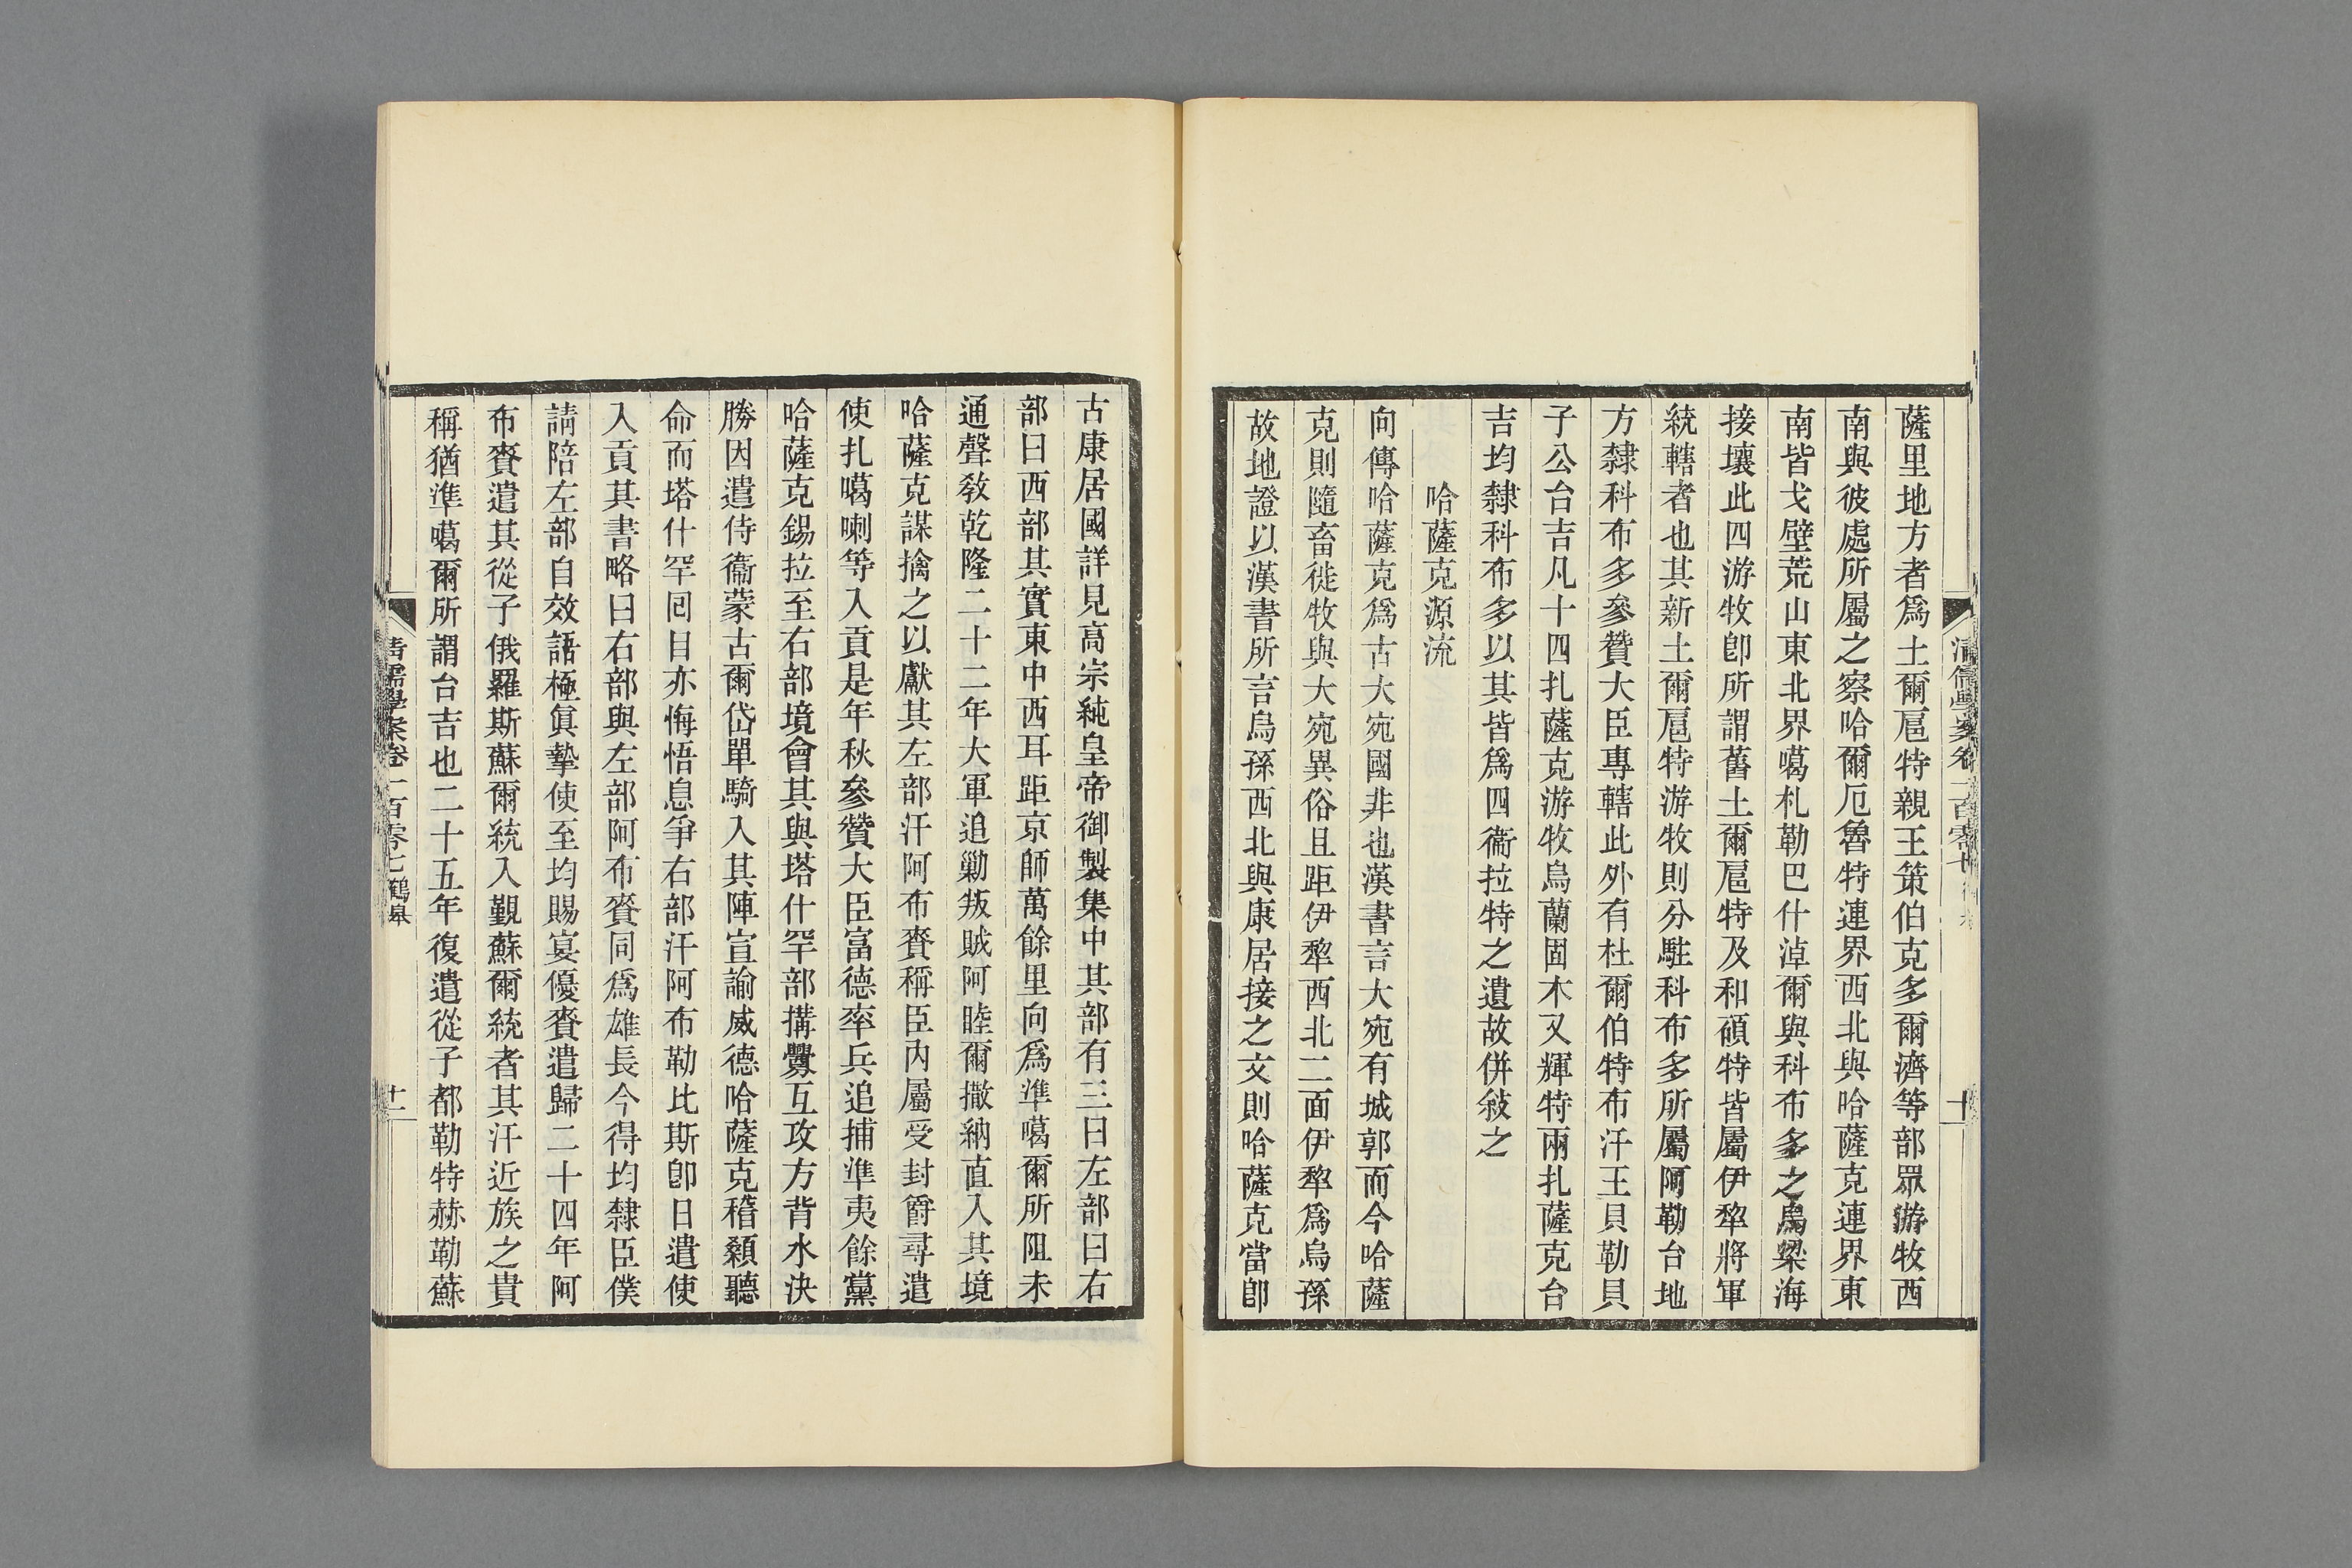 薩里地方者爲土爾扈特親王策伯克多爾濟等部眾游牧西
南與彼處所屬之察哈爾厄魯特連界西北與哈薩克連界東
南皆戈壁荒山東北界噶札勒巴什淖爾與科布多之烏梁海
接壤此四游牧卽所謂舊土爾扈特及和碩特皆屬伊犂將軍
統轄者也其新土爾扈特游牧則分駐科布多所屬阿勒台地
方隸科布多參贊大臣專轄此外有杜爾伯特布汗王貝勒貝
子公台吉凡十四扎薩克游牧烏蘭固木又輝特兩扎薩克台
吉均隸科布多以其皆爲四衞拉特之遺故併敍之
哈薩克源流
向傳哈薩克爲古大宛國非也漢書言大宛有城郭而今哈薩
克則隨畜徙牧與大宛異俗且距伊犂西北二面伊犂爲烏孫
故地證以漢書所言烏孫西北與康居接之文則哈薩克當卽
古康居國詳見高宗純皇帝御製集中其部有三曰左部曰右
部曰西部其實東中西耳距京師萬餘里向爲準噶爾所阻未
通聲敎乾隆二十二年大軍追勦叛賊阿睦爾撒納直入其境
哈薩克謀擒之以獻其左部汗阿布賚稱臣內屬受封爵尋遣
使扎噶喇等入貢是年秋參贊大臣富德率兵追捕準夷餘黨
哈薩克錫拉至右部境會其與塔什罕部搆釁互攻方背水決
勝因遣侍衞蒙古爾岱單騎入其陣宣諭威德哈薩克稽顙聽
命而塔什罕囘目亦悔悟息爭右部汗阿布勒比斯卽日遣使
入貢其書略曰右部與左部阿布賚同爲雄長今得均隸臣僕
請陪左部自效語極眞摯使至均賜宴優賚遣歸二十四年阿
布賚遣其從子俄羅斯蘇爾統入覲蘇爾統者其汗近族之貴
稱猶準噶爾所謂台吉也二十五年復遣從子都勒特赫勒蘇
清儒學案卷一百零七鶴皋
十一